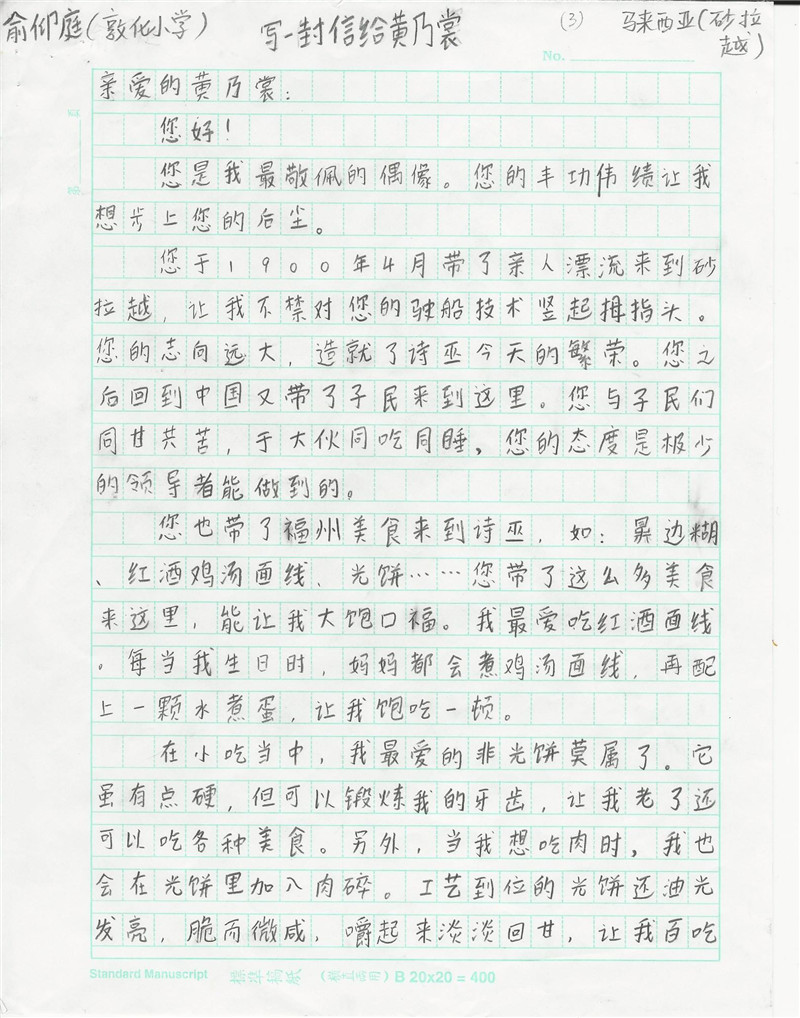 俞仰庭(敦化小学)
写一封信给黄乃裳
(3)
马来西亚(砂拉
越)
No.
亲爱的黄乃裳：
您好！
您是我最敬佩的偶像。您的丰功伟绩让我
想步上您的后尘。
您于1900年4月带了亲人漂流来到砂
拉越，让我不禁对您的驶船技术竖起拇指头。
您的志向远大，造就了诗巫今天的繁荣。您之
后回到中国又带了子民来到这里。您与子民们
同甘共苦，于大伙同吃同睡，您的态度是极少
的领导者能做到的。
您也带了福州美食来到诗巫，如：鼎边糊
、红酒鸡汤面线、光饼……您带了这么多美食
来这里，能让我大饱口福。我最爱吃红酒面线
。每当我生日时，妈妈都会煮鸡汤面线，再配
上一颗水煮蛋，让我饱吃一顿。
在小吃当中，我最爱的非光饼莫属了。它
虽有点硬，但可以锻炼我的牙齿，让我老了还
可以吃各种美食。另外，当我想吃肉时，我也
会在光饼里加入肉碎。工艺到位的光饼还油光
发亮，脆而微咸，嚼起来淡淡回甘，让我百吃
Standard Manuscript
B 20x20 = 400